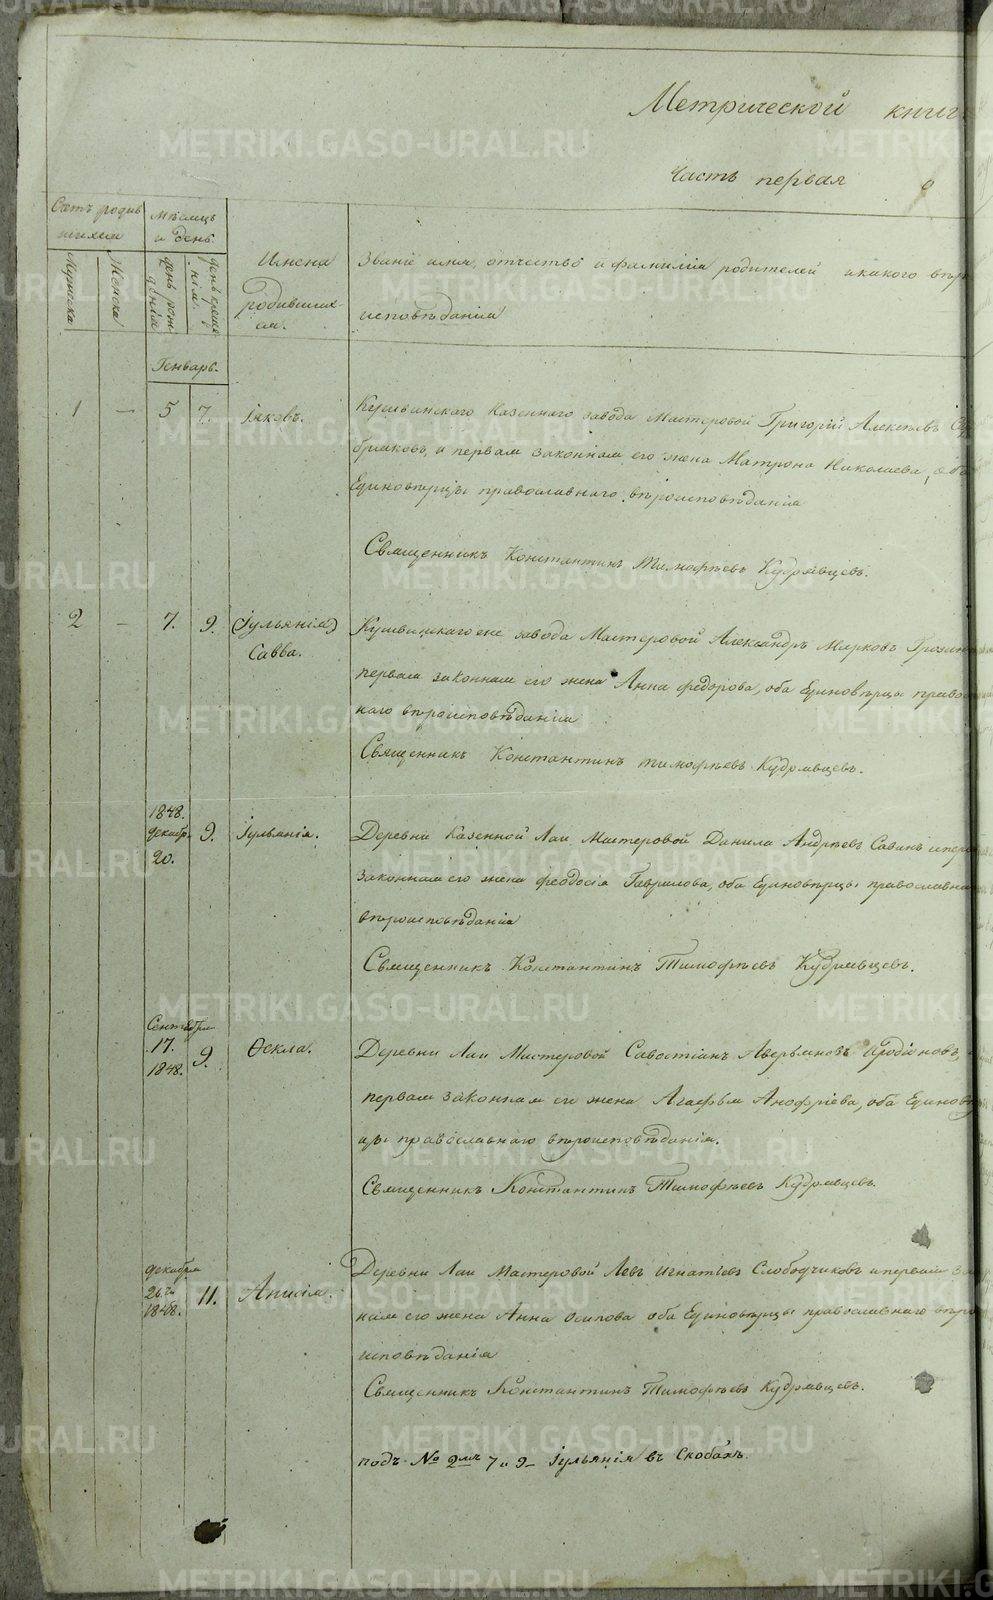 Метрической книг
Часть первая о
Счетъ родив
шихся
Мѣсяцъ
и день.
Мужеска
Женска
день рож
денія
день креще
нія.
Имена
родивших-
ся.
Званіе имя, отчество и фамилія родителей и какого вѣро
исповѣданія
Генварь.
1 — 5 7. Іяковъ.
Кушвинскаго Казеннаго завода Мастеровой Григорій Алексѣевъ
бряковъ, и первая законная его жена Матрона Николаева, оба
Единовѣрцы православнаго вѣроисповѣданія
Священникъ Константинъ Тимофѣевъ Кудрявцевъ.
2 — 7. 9. (Іульянія)
Савва.
Кушвинскагоже завода Мастеровой Александръ Марковъ
первая законная его жена Анна Федорова, оба Единовѣрцы правос
наго вѣроисповѣданія
Священникъ Константинъ тимофѣевъ Кудрявцевъ.
1848.
декабр.
20.
9. Іульянія.
Деревни Казенной Лаи Мастеровой Данила Андрѣевъ Савинъ и перв
законная его жена Феодосія Гаврилова, оба Единовѣрцы православна
вѣроисповѣданія
Священникъ Константинъ Тимофѣевъ Кудрявцевъ.
Сентября
17.
1848.
9. Ѳекла.
Деревни Лаи Мастеровой Савостіанъ Аверьяновъ Иродіоновъ,
первая законная его жена Агафья Анофріева, оба Единовѣ
цы православнаго вѣроисповѣданія.
Священникъ Константинъ Тимофѣевъ Кудрявцевъ.
декабря
26.го
1848.
11. Анисія.
Деревни Лаи Мастеровой Левъ Игнатіевъ Слободчиковъ и первая за
ная его жена Анна Осипова оба Единовѣрцы православнаго вѣро
исповѣданія
Священникъ Константинъ Тимофѣевъ Кудрявцевъ.
подъ № 2мъ 7 и 9– Іульянія въ Скобахъ.
METRIKI.GASO-URAL.RU